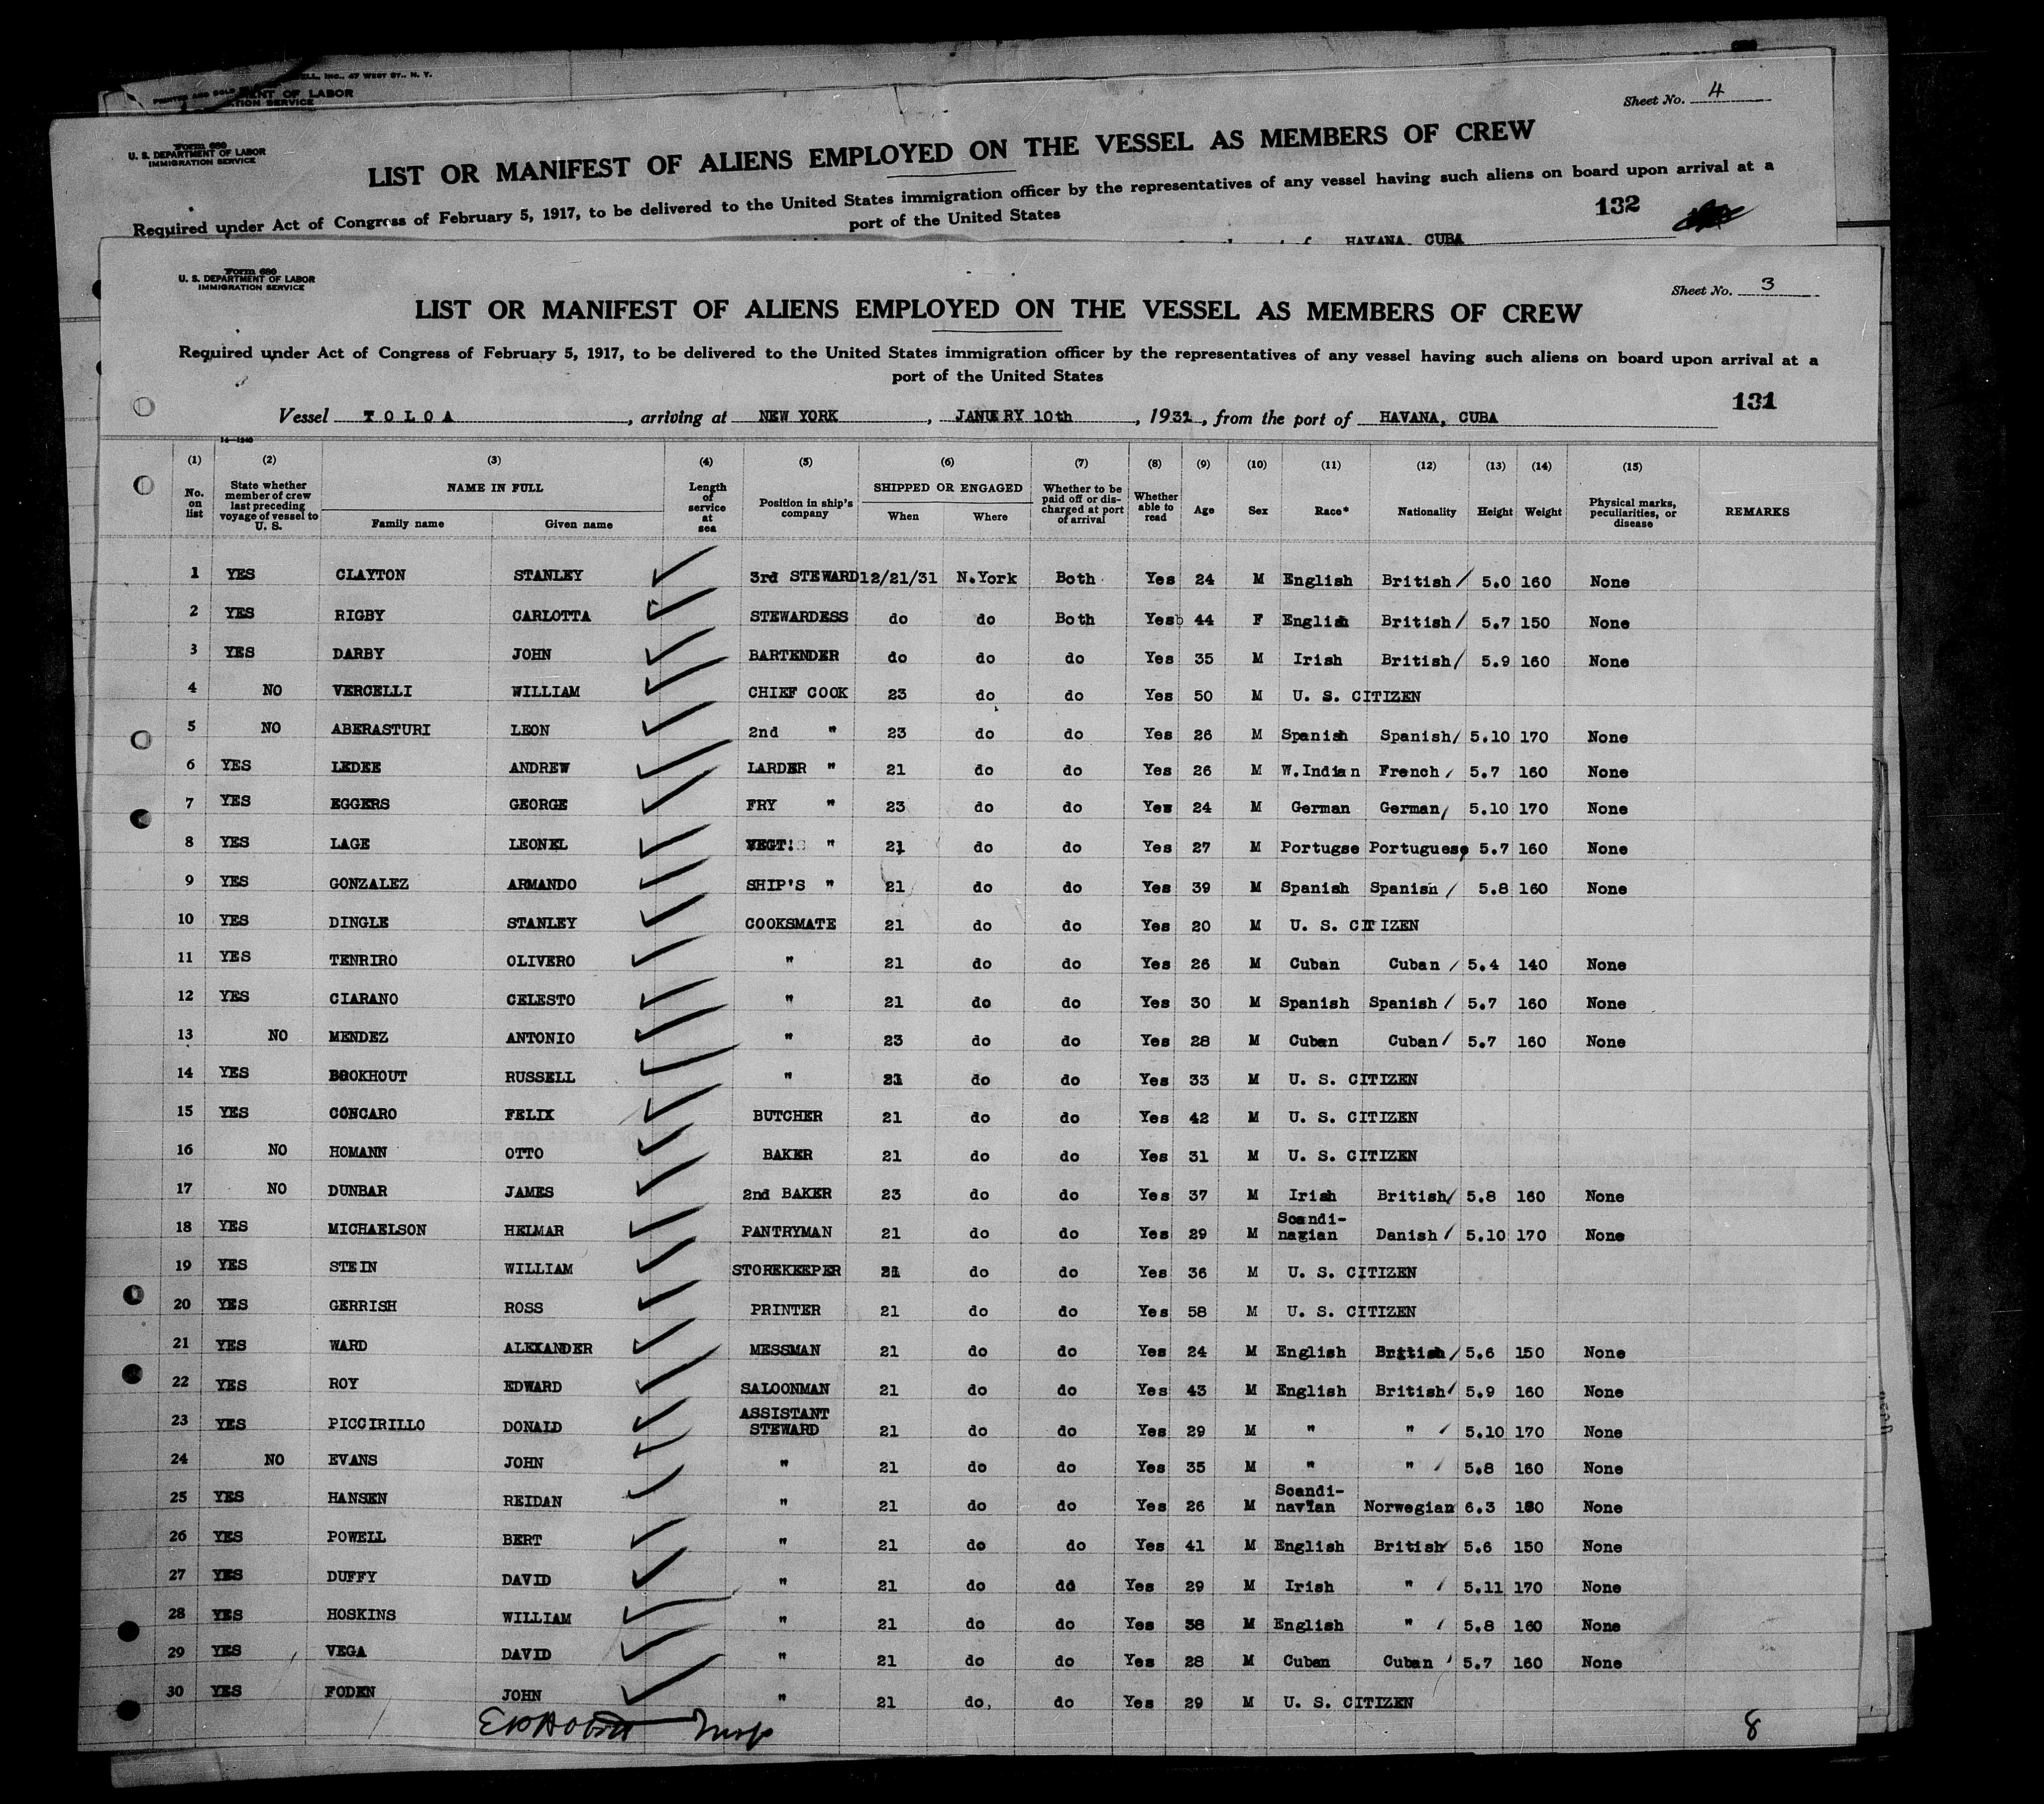 ELL, INC., 47 WEST ST., N. Y.
PRINTED AND SOLD
ENT OF LABOR
TION SERVICE
Sheet No. 4
Form 680
U. S. DEPARTMENT OF LABOR
IMMIGRATION SERVICE
LIST OR MANIFEST OF ALIENS EMPLOYED ON THE VESSEL AS MEMBERS OF CREW
Required under Act of Congress of February 5, 1917, to be delivered to the United States immigration officer by the representatives of any vessel having such aliens on board upon arrival at a
port of the United States
132
HAVANA, CUBA
Form 680
U. S. DEPARTMENT OF LABOR
IMMIGRATION SERVICE
Sheet No. 3
LIST OR MANIFEST OF ALIENS EMPLOYED ON THE VESSEL AS MEMBERS OF CREW
Required under Act of Congress of February 5, 1917, to be delivered to the United States immigration officer by the representatives of any vessel having such aliens on board upon arrival at a
port of the United States
131
Vessel TOLOA, arriving at NEW YORK, JANUERY 10th, 1932, from the port of HAVANA, CUBA
14—1240
(1) (2) (3) (4) (5) (6) (7) (8) (9) (10) (11) (12) (13) (14) (15)
No. on list State whether member of crew last preceding voyage of vessel to U. S. NAME IN FULL Family name Given name Length of service at sea Position in ship's company SHIPPED OR ENGAGED When Where Whether to be paid off or discharged at port of arrival Whether able to read Age Sex Race* Nationality Height Weight Physical marks, peculiarities, or disease REMARKS
1 YES CLAYTON STANLEY 3rd STEWARD 12/21/31 N.York Both Yes 24 M English British 5.0 160 None
2 YES RIGBY CARLOTTA STEWARDESS do do Both Yes 44 F English British 5.7 150 None
3 YES DARBY JOHN BARTENDER do do do Yes 35 M Irish British 5.9 160 None
4 NO VERCELLI WILLIAM CHIEF COOK 23 do do Yes 50 M U. S. CITIZEN
5 NO ABERASTURI LEON 2nd " 23 do do Yes 26 M Spanish Spanish 5.10 170 None
6 YES LEDEE ANDREW LARDER " 21 do do Yes 26 M W.Indian French 5.7 160 None
7 YES EGGERS GEORGE FRY " 23 do do Yes 24 M German German 5.10 170 None
8 YES LAGE LEONEL VEGT! " 21 do do Yes 27 M Portugse Portuguese 5.7 160 None
9 YES GONZALEZ ARMANDO SHIP'S " 21 do do Yes 39 M Spanish Spanish 5.8 160 None
10 YES DINGLE STANLEY COOKSMATE 21 do do Yes 20 M U. S. CITIZEN
11 YES TENRIRO OLIVERO " 21 do do Yes 26 M Cuban Cuban 5.4 140 None
12 YES CIARANO CELESTO " 21 do do Yes 30 M Spanish Spanish 5.7 160 None
13 NO MENDEZ ANTONIO " 23 do do Yes 28 M Cuban Cuban 5.7 160 None
14 YES BROKHOUT RUSSELL " 21 do do Yes 33 M U. S. CITIZEN
15 YES CONCARO FELIX BUTCHER 21 do do Yes 42 M U. S. CITIZEN
16 NO HOMANN OTTO BAKER 21 do do Yes 31 M U. S. CITIZEN
17 NO DUNBAR JAMES 2nd BAKER 23 do do Yes 37 M Irish British 5.8 160 None
18 YES MICHAELSON HELMAR PANTRYMAN 21 do do Yes 29 M Scandi-navian Danish 5.10 170 None
19 YES STEIN WILLIAM STOREKEEPER 21 do do Yes 36 M U. S. CITIZEN
20 YES GERRISH ROSS PRINTER 21 do do Yes 58 M U. S. CITIZEN
21 YES WARD ALEXANDER MESSMAN 21 do do Yes 24 M English British 5.6 150 None
22 YES ROY EDWARD SALOONMAN 21 do do Yes 43 M English British 5.9 160 None
23 YES PICCIRILLO DONALD ASSISTANT STEWARD 21 do do Yes 29 M " " 5.10 170 None
24 NO EVANS JOHN " 21 do do Yes 35 M " " 5.8 160 None
25 YES HANSEN REIDAN " 21 do do Yes 26 M Scandi-navian Norwegian 6.3 180 None
26 YES POWELL BERT " 21 do do Yes 41 M English British 5.6 150 None
27 YES DUFFY DAVID " 21 do do Yes 29 M Irish " 5.11 170 None
28 YES HOSKINS WILLIAM " 21 do do Yes 38 M English " 5.8 160 None
29 YES VEGA DAVID " 21 do do Yes 28 M Cuban Cuban 5.7 160 None
30 YES FODEN JOHN " 21 do, do Yes 29 M U. S. CITIZEN
8